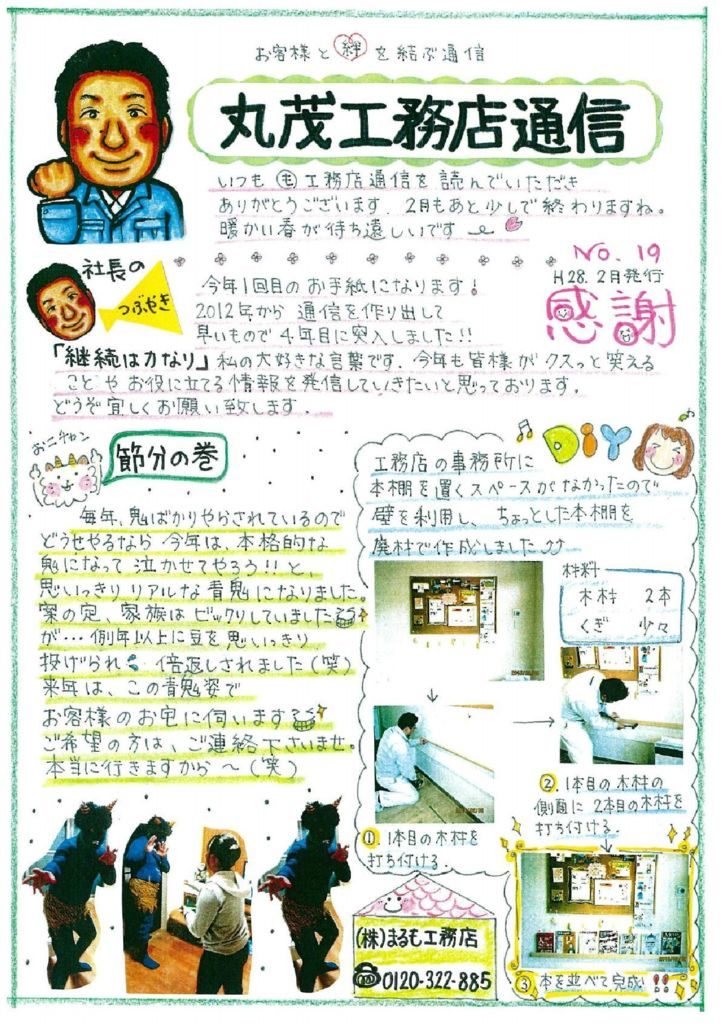 お客様と絆を結ぶ通信
丸茂工務店通信
いつも㋲工務店通信を読んでいただき
ありがとうございます。2月もあと少しで終わりますね。
暖かい春が待ち遠しいです
No.19
H28.2月発行
感謝
社長の
つぶやき
今年1回目のお手紙になります!
2012年から通信を作り出して
早いもので4年目に突入しました!!
「継続は力なり」私の大好きな言葉です。今年も皆様がクスっと笑える
ことやお役に立てる情報を発信していきたいと思っております。
どうぞ宜しくお願い致します。
おニチャン
節分の巻
毎年、鬼ばかりやらされているので
どうせやるなら今年は、本格的な
鬼になって泣かせてやろう!!と、
思いっきりリアルな青鬼になりました。
案の定、家族はビックリしていました
が…例年以上に豆を思いっきり
投げられ 倍返しされました(笑)
来年は、この青鬼姿で
お客様のお宅に伺います
ご希望の方は、ご連絡下さいませ。
本当に行きますから〜(笑)
DiY
工務店の事務所に
本棚を置くスペースがなかったので
壁を利用し、ちょっとした本棚を
廃材で作成しました
材料
木材 2本
くぎ 少々
① 1本目の木材を
打ち付ける。
② 1本目の木材の
側面に2本目の木材を
打ち付ける。
③ 本を並べて完成!!
(株)まるも工務店
0120-322-885